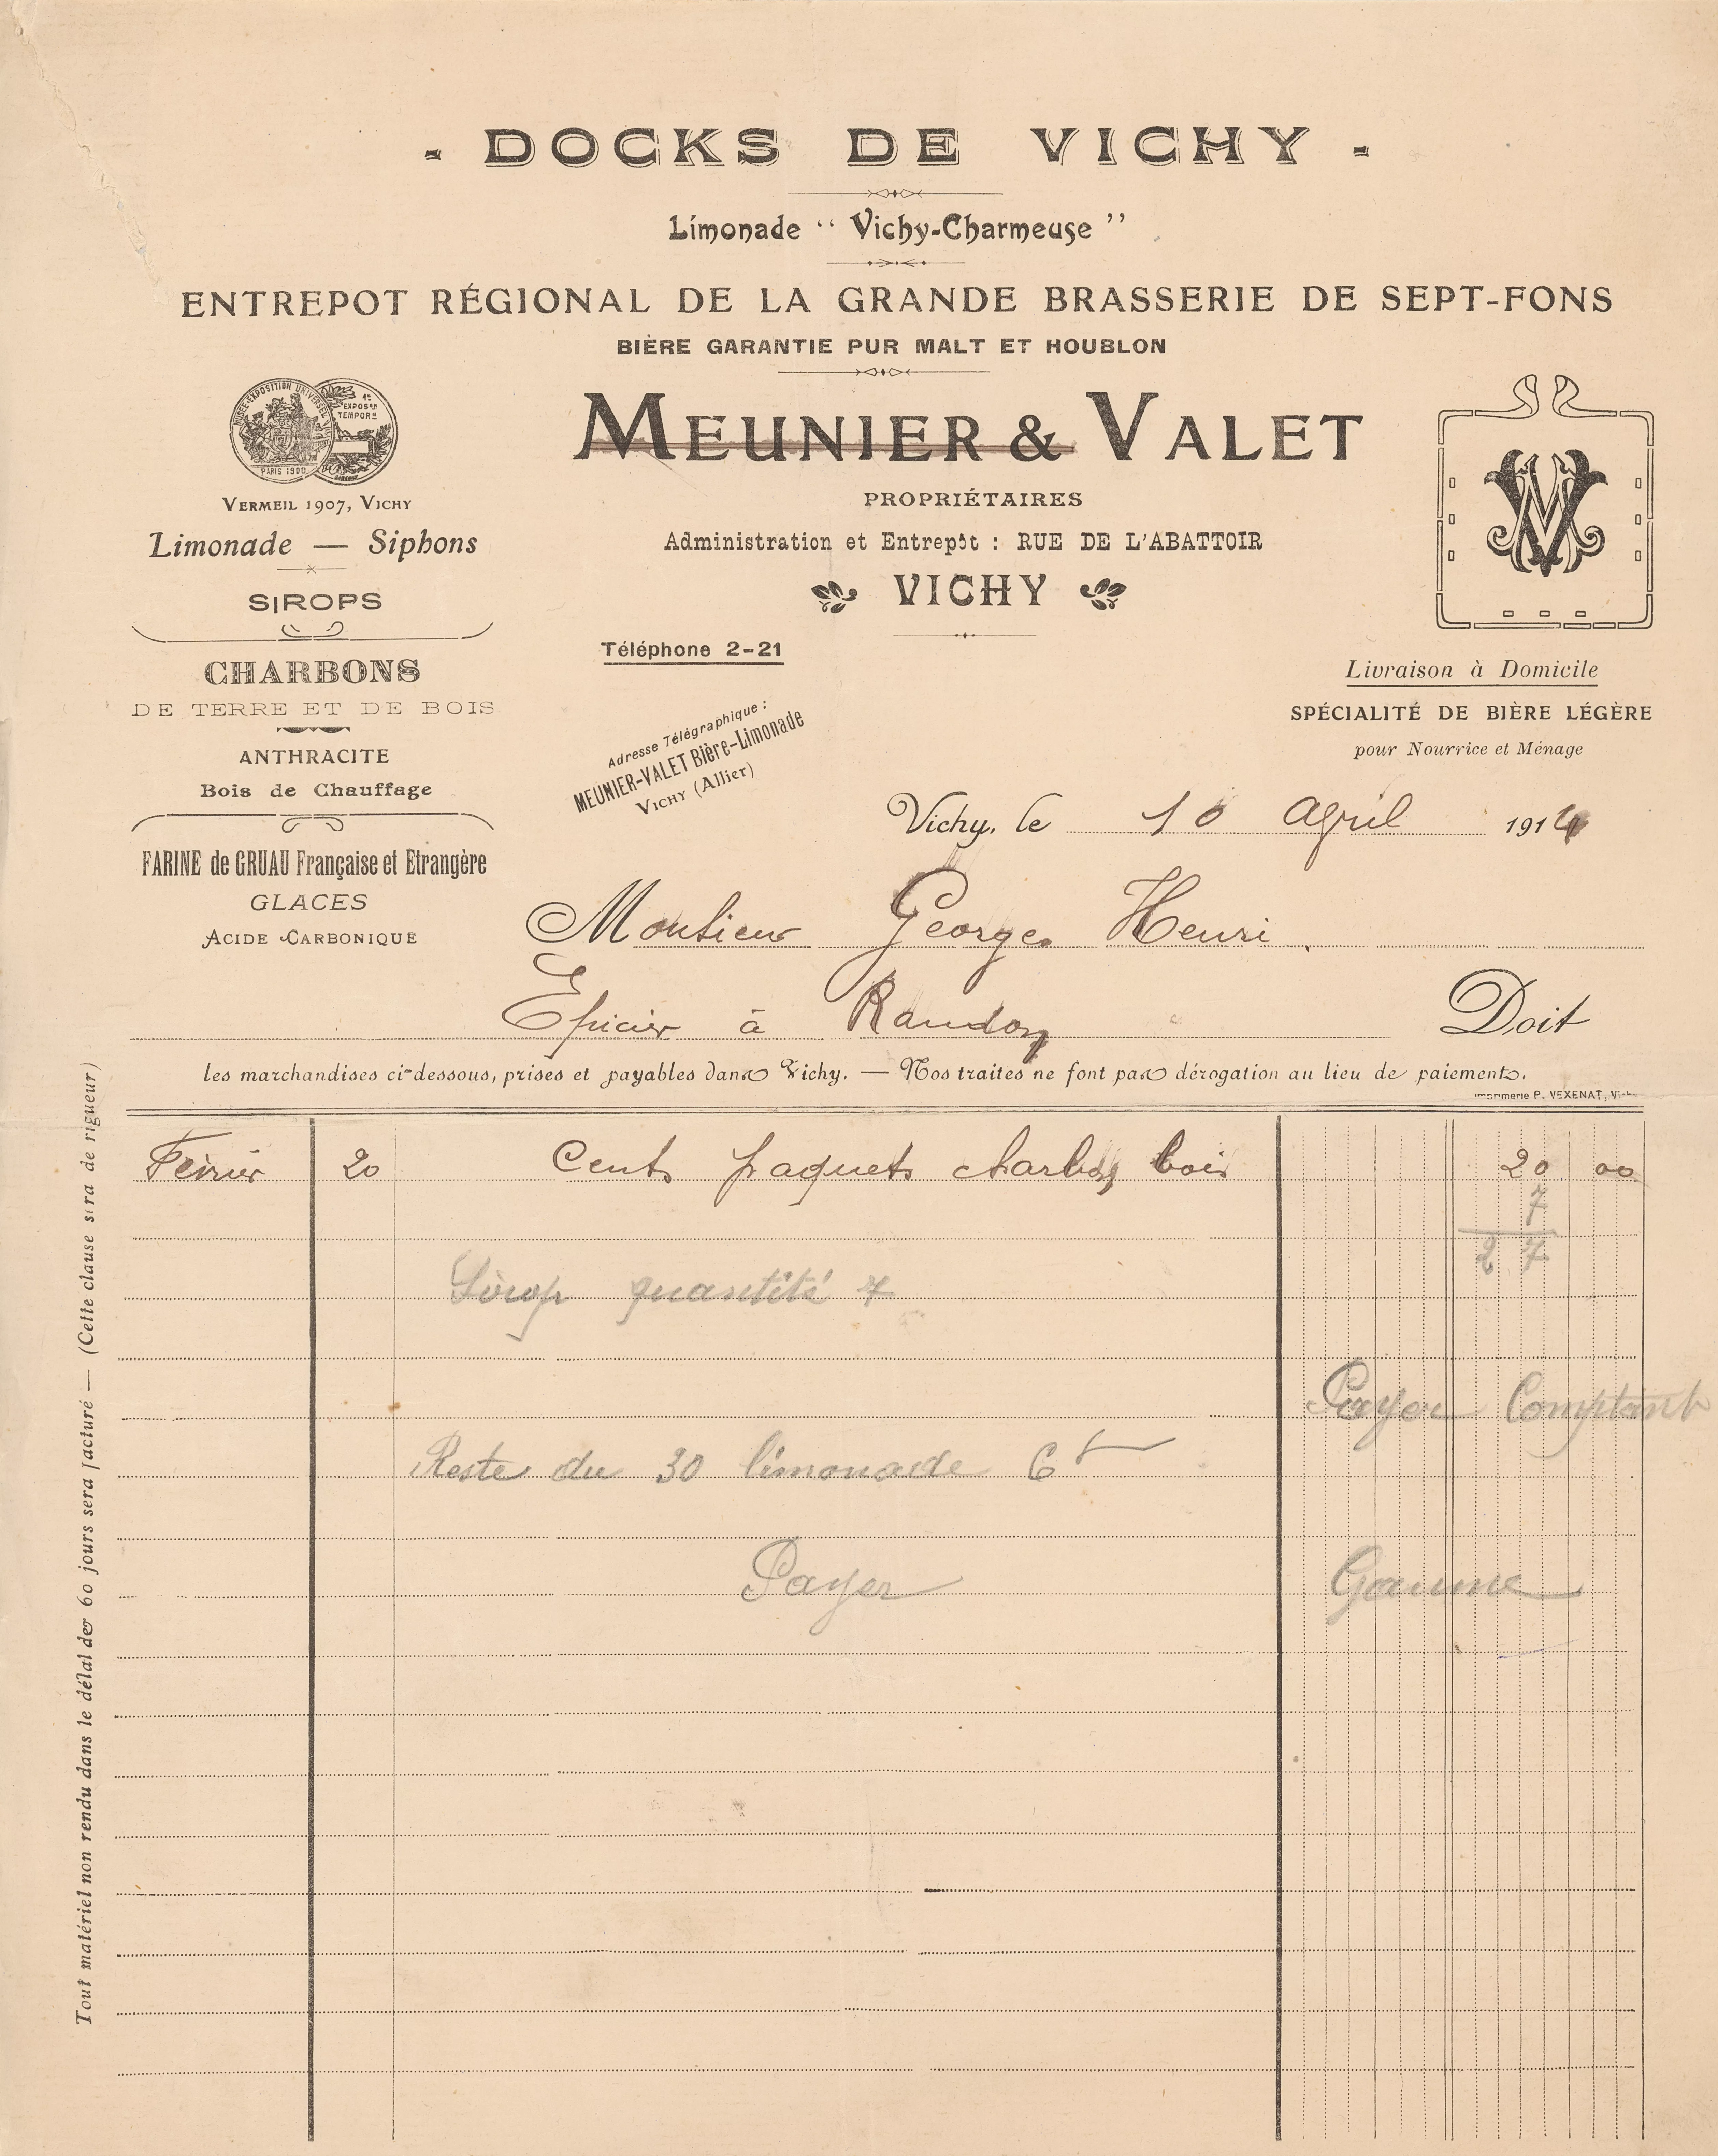 - DOCKS DE VICHY -
Limonade “ Vichy-Charmeuse ”
ENTREPOT RÉGIONAL DE LA GRANDE BRASSERIE DE SEPT-FONS
BIÈRE GARANTIE PUR MALT ET HOUBLON
MUSÉE-EXPOSITION UNIVERSELLE
PARIS 1900
1re EXPOSon TEMPORre
MEUNIER & VALET
PROPRIÉTAIRES
Administration et Entrepôt : RUE DE L'ABATTOIR
VICHY
Téléphone 2-21
Adresse Télégraphique :
MEUNIER-VALET Bière-Limonade
VICHY (Allier)
VERMEIL 1907, VICHY
Limonade — Siphons
SIROPS
CHARBONS
DE TERRE ET DE BOIS
ANTHRACITE
Bois de Chauffage
FARINE de GRUAU Française et Etrangère
GLACES
ACIDE CARBONIQUE
MV
Livraison à Domicile
SPÉCIALITÉ DE BIÈRE LÉGÈRE
pour Nourrice et Ménage
Vichy, le 10 april 1914
Monsieur Georges Henri
Epicier à Randon Doit
les marchandises ci-dessous, prises et payables dans Vichy. — Nos traites ne font pas dérogation au lieu de paiement.
Imprimerie P. VEXENAT, Vichy
Tout matériel non rendu dans le délai de 60 jours sera facturé — (Cette clause sera de rigueur)
Fevrier 20 Cents paquets charbon bois 20 00
7
27
Sirop quantité 7
Payer Comptant
Reste du 30 limonade 6f
Payer Gaume